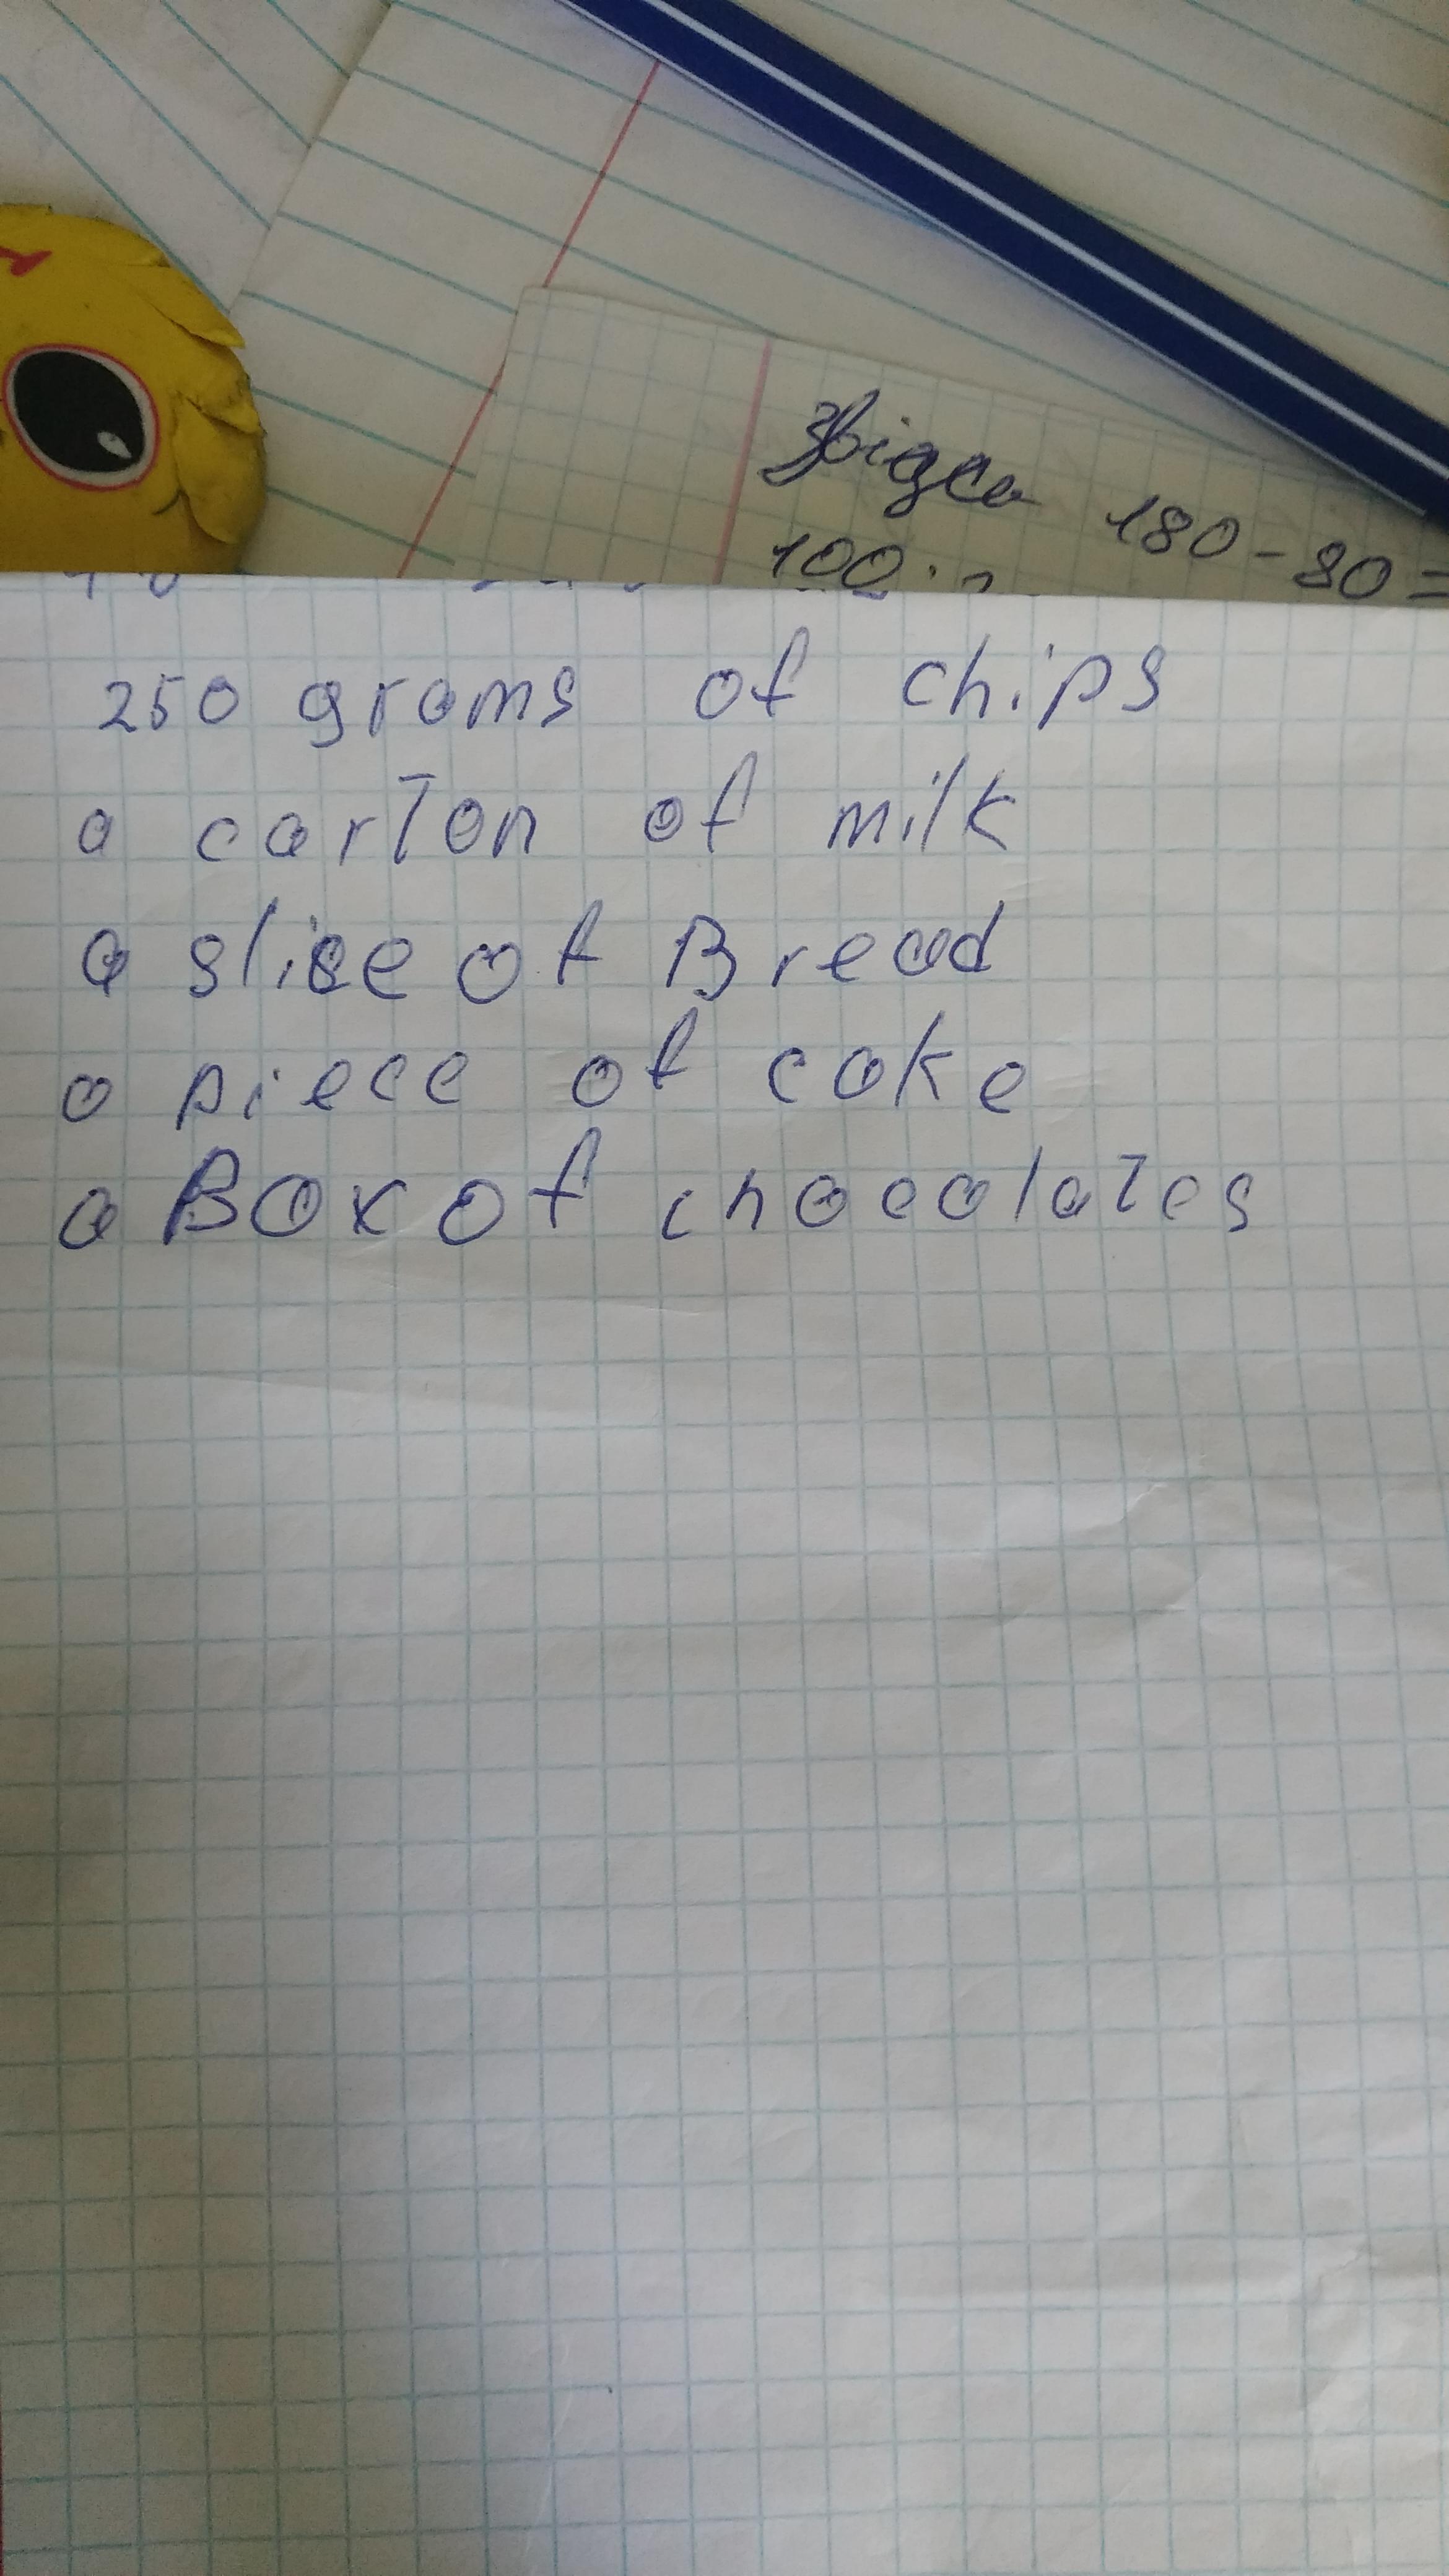 Звідси 180-80=
100
250 grams of chips
a carton of milk
a slice of Bread
a piece of cake
a Box of chocolates